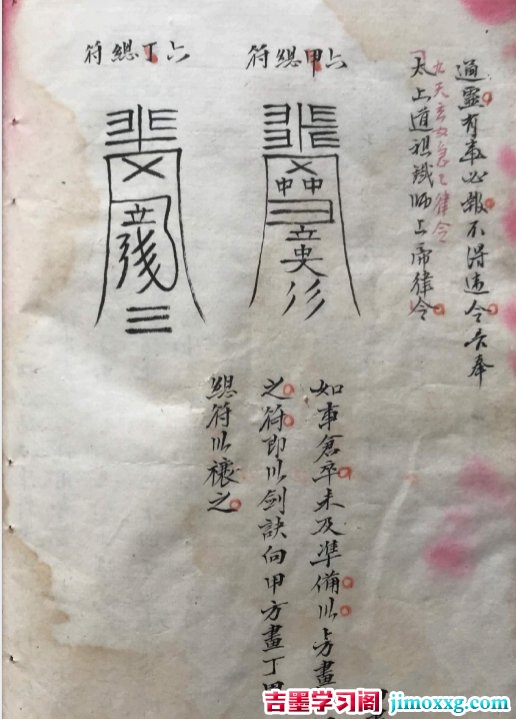 通靈有事必報不得违令吾奉
九天玄女急〻律令
太上道祖鐵师上帝律令
六甲總符
中中
立
六丁總符
立
三
如事倉卒未及準備以方畫
之符即以剑訣向甲方畫丁甲
總符以禳之
吉墨学习阁 jimoxxg.com